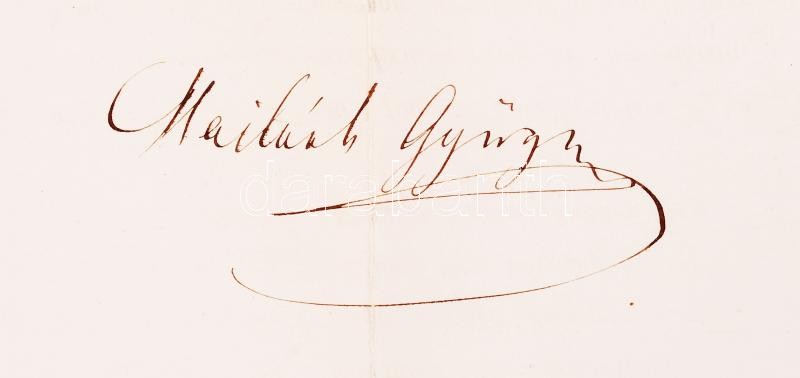 Mailáth György
darabanth